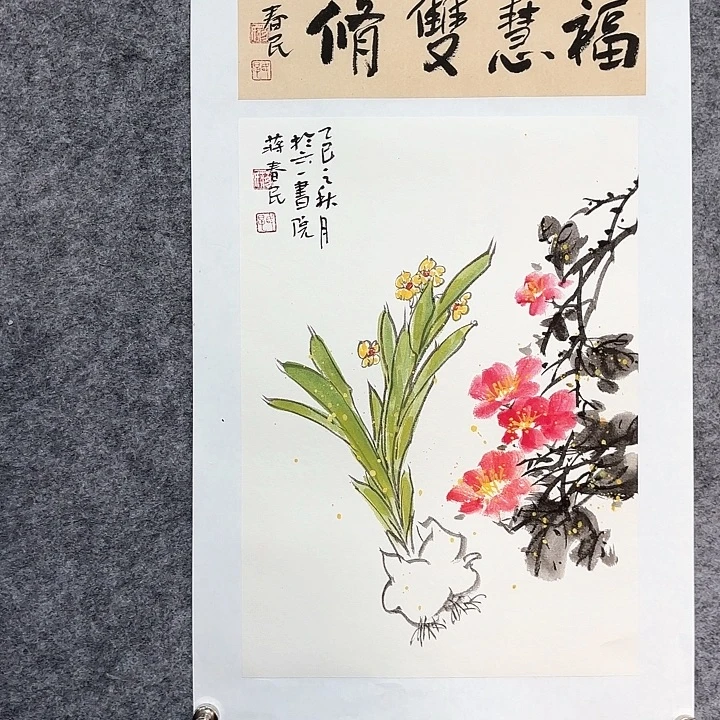 福慧雙脩
春民
乙巳之秋月
於六一書院
蔣春民